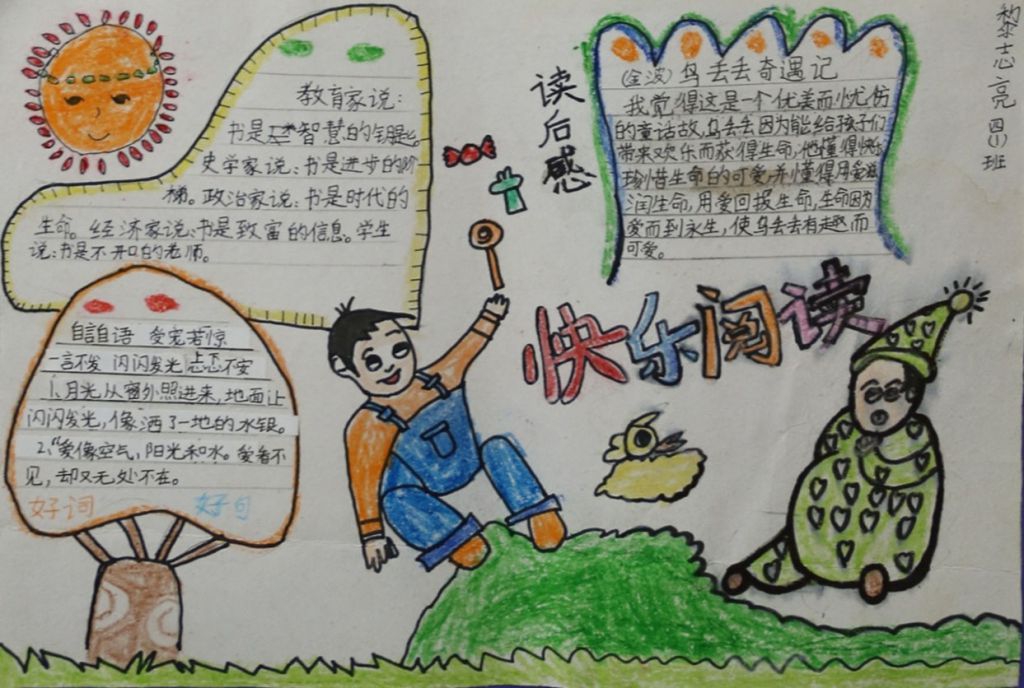 教育家说:
书是智慧的钥匙。
史学家说:书是进步的阶
梯。政治家说:书是时代的
生命。经济家说:书是致富的信息。学生
说:书是不开口的老师。
读后感
(金波)乌丢丢奇遇记
我觉得这是一个优美而忧伤
的童话故,乌丢丢因为能给孩子们
带来欢乐而获得生命,他懂得快乐
珍惜生命的可爱,并懂得用爱滋
润生命,用爱回报生命,生命因为
爱而到永生,使乌丢丢有趣而
可爱。
志亮 四(1)班
快乐阅读
自言自语 受宠若惊
一言不发 闪闪发光 忐忑不安
1、月光从窗外照进来,地面让
闪闪发光,像洒了一地的水银。
2、“爱像空气,阳光和水。爱看不
见,却又无处不在。
好词 好句